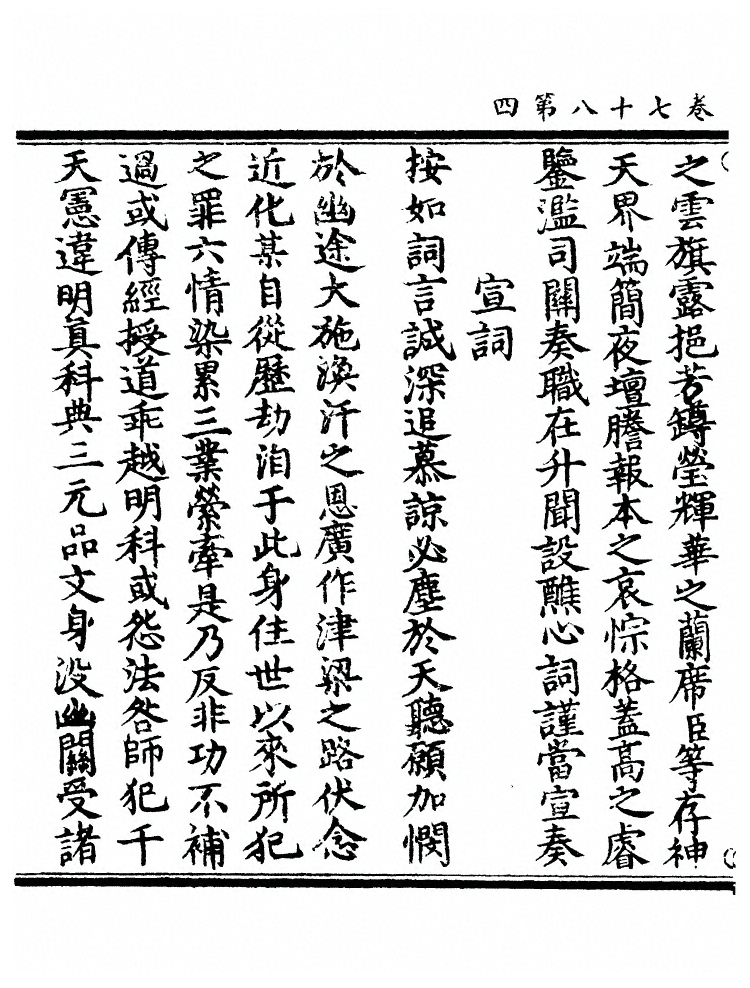 卷七十八第四
之雲旗露挹芳罇瑩輝華之蘭席臣等存神
天界端簡夜壇謄報本之哀悰格蓋高之睿
鑒濫司關奏職在升聞設醮心詞謹當宣奏
宣詞
按如詞言誠深追慕諒必塵於天聽願加憫
於幽途大施渙汗之恩廣作津梁之路伏念
近化某自從歷劫洎于此身住世以來所犯
之罪六情染累三業縈牽是乃反非功不補
過或傳經授道乖越明科或怨法咎師犯干
天憲違明真科典三元品文身沒幽關受諸